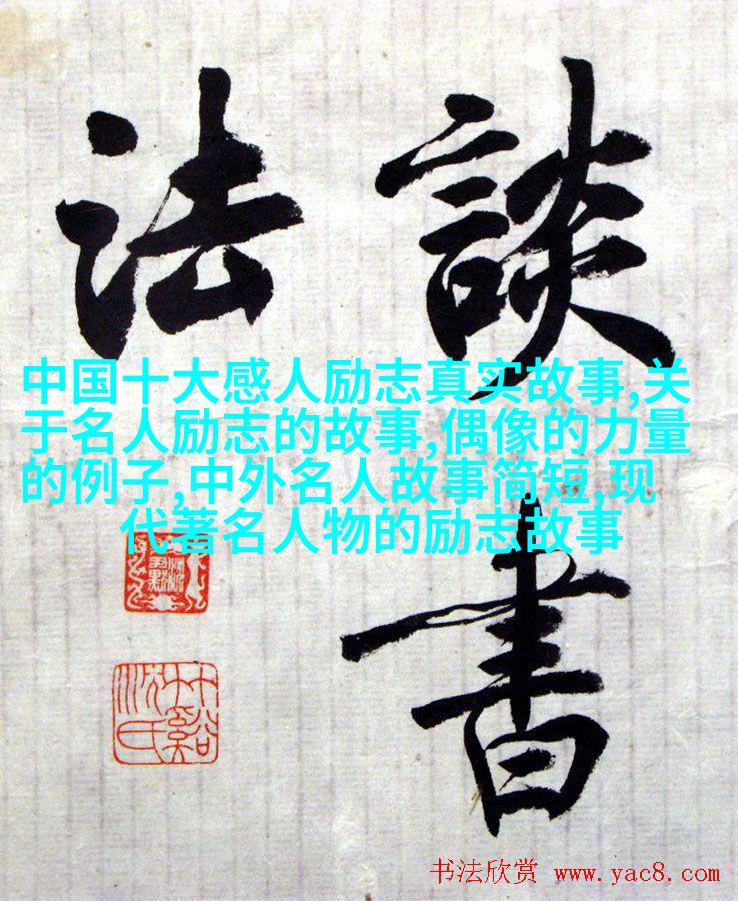 談書
法
中国十大感人励志真实故事,关
于名人励志的故事,偶像的力量
的例子,中外名人故事简短,现
代著名人物的励志故事
书法欣赏 www.yac8.com